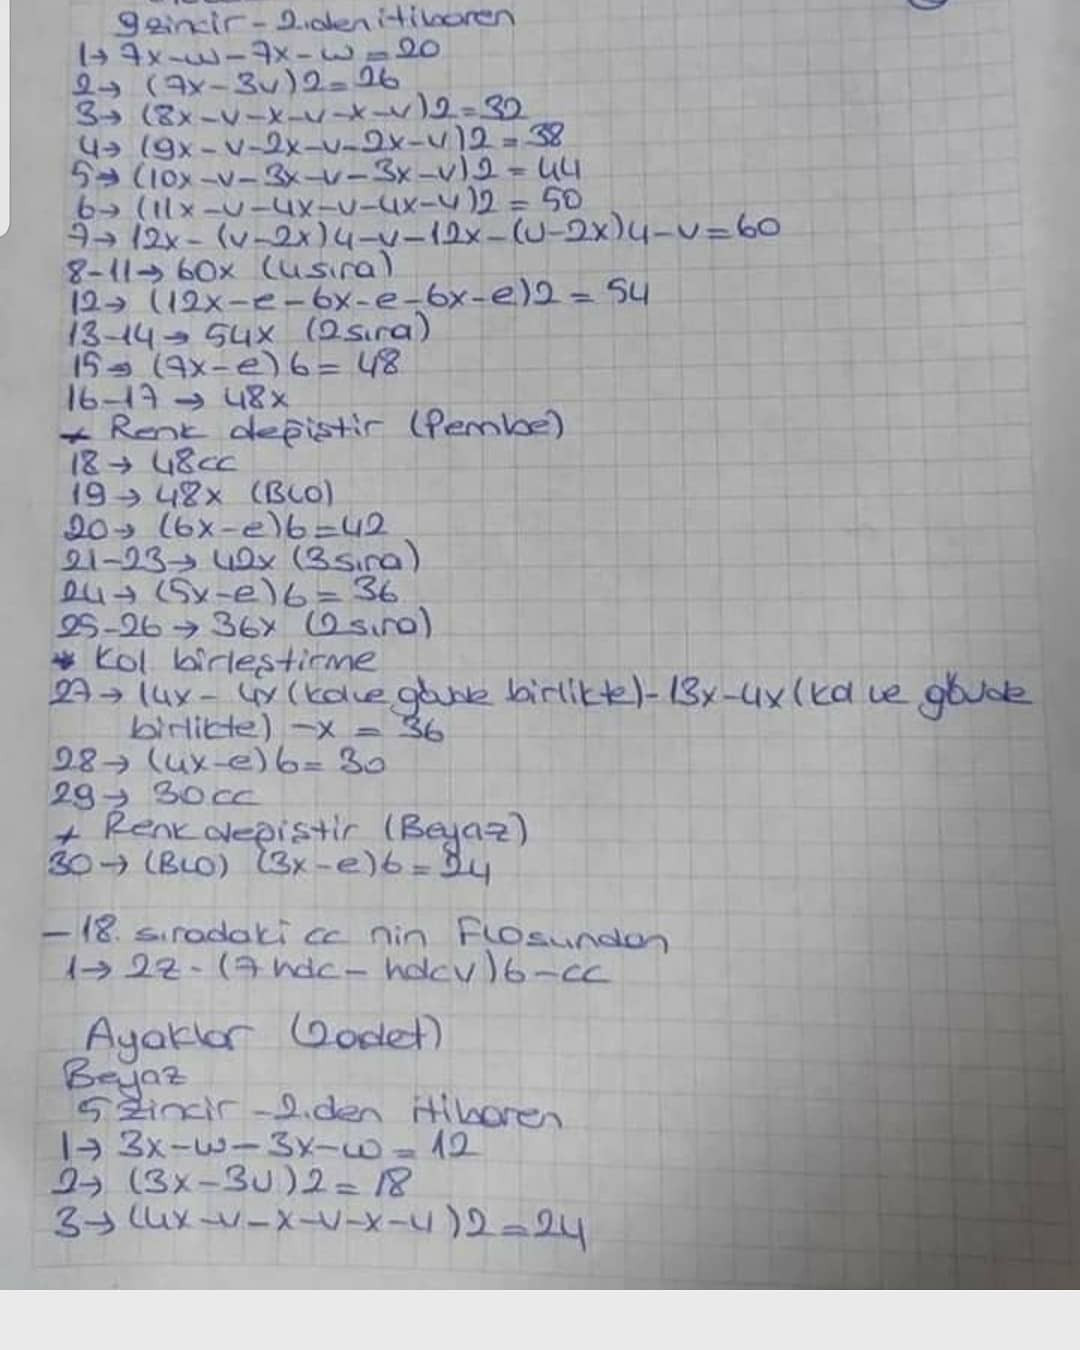 9 zincir - 2.den itibaren
1→ 7x-w-7x-w=20
2→ (7x-3v)2=26
3→ (8x-v-x-v-x-v)2=32
4→ (9x-v-2x-v-2x-v)2=38
5→ (10x-v-3x-v-3x-v)2=44
6→ (11x-v-4x-v-4x-v)2=50
7→ 12x-(v-2x)4-v-12x-(v-2x)4-v=60
8-11→ 60x (4 sıra)
12→ (12x-e-6x-e-6x-e)2=54
13-14→ 54x (2 sıra)
15→ (7x-e)6=48
16-17→ 48x
* Renk değiştir (Pembe)
18→ 48cc
19→ 48x (BLO)
20→ (6x-e)6=42
21-23→ 42x (3 sıra)
24→ (5x-e)6=36
25-26→ 36x (2 sıra)
* Kol birleştirme
27→ 14x-4x (kol ve gövde birlikte)-13x-4x (kol ve gövde
birlikte)-x=36
28→ (4x-e)6=30
29→ 30cc
* Renk değiştir (Beyaz)
30→ (BLO) (3x-e)6=24
-18. sıradaki cc nin FLOsundan
1→ 2z-(7hdc-hdcv)6-cc
Ayaklar (2 adet)
Beyaz
5 zincir - 2.den itibaren
1→ 3x-w-3x-w=12
2→ (3x-3v)2=18
3→ (4x-v-x-v-x-v)2=24